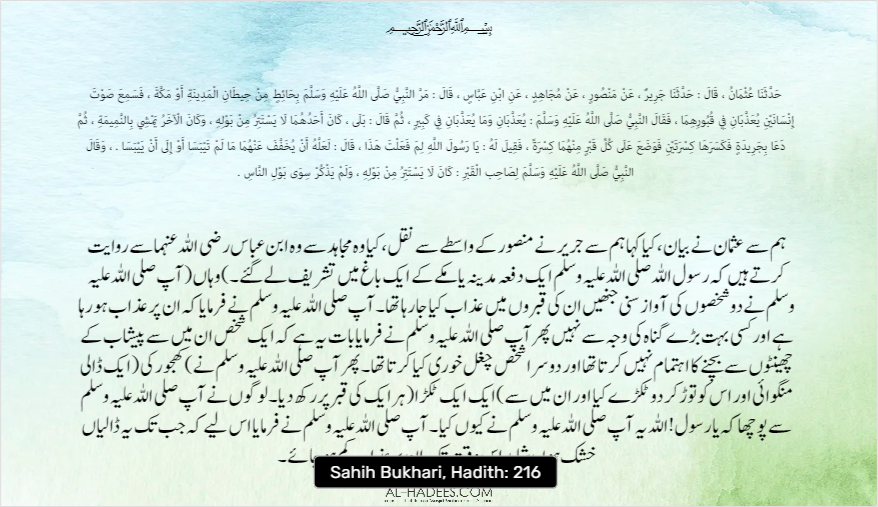 بِسْمِ اللَّهِ الرَّحْمَٰنِ الرَّحِيمِ
حَدَّثَنَا عُثْمَانُ ، قَالَ : حَدَّثَنَا جَرِيرٌ ، عَنْ مَنْصُورٍ ، عَنْ مُجَاهِدٍ ، عَنِ ابْنِ عَبَّاسٍ ، قَالَ : مَرَّ النَّبِيُّ صَلَّى اللَّهُ عَلَيْهِ وَسَلَّمَ بِحَائِطٍ مِنْ حِيطَانِ الْمَدِينَةِ أَوْ مَكَّةَ ، فَسَمِعَ صَوْتَ
إِنْسَانَيْنِ يُعَذَّبَانِ فِي قُبُورِهِمَا ، فَقَالَ النَّبِيُّ صَلَّى اللَّهُ عَلَيْهِ وَسَلَّمَ : يُعَذَّبَانِ وَمَا يُعَذَّبَانِ فِي كَبِيرٍ ، ثُمَّ قَالَ : بَلَى ، كَانَ أَحَدُهُمَا لَا يَسْتَتِرُ مِنْ بَوْلِهِ ، وَكَانَ الْآخَرُ يَمْشِي بِالنَّمِيمَةِ ، ثُمَّ
دَعَا بِجَرِيدَةٍ فَكَسَرَهَا كِسْرَتَيْنِ فَوَضَعَ عَلَى كُلِّ قَبْرٍ مِنْهُمَا كِسْرَةً ، فَقِيلَ لَهُ : يَا رَسُولَ اللَّهِ لِمَ فَعَلْتَ هَذَا ، قَالَ : لَعَلَّهُ أَنْ يُخَفَّفَ عَنْهُمَا مَا لَمْ تَيْبَسَا أَوْ إِلَى أَنْ يَيْبَسَا . ، وَقَالَ
النَّبِيُّ صَلَّى اللَّهُ عَلَيْهِ وَسَلَّمَ لِصَاحِبِ الْقَبْرِ : كَانَ لَا يَسْتَتِرُ مِنْ بَوْلِهِ ، وَلَمْ يَذْكُرْ سِوَى بَوْلِ النَّاسِ .
ہم سے عثمان نے بیان ، کیا کہا ہم سے جریر نے منصور کے واسطے سے نقل ، کیا وہ مجاہد سے وہ ابن عباس رضی اللہ عنہما سے روایت
کرتے ہیں کہ رسول اللہ صلی اللہ علیہ وسلم ایک دفعہ مدینہ یا مکے کے ایک باغ میں تشریف لے گئے۔ ) وہاں ( آپ صلی اللہ علیہ
وسلم نے دو شخصوں کی آواز سنی جنھیں ان کی قبروں میں عذاب کیا جا رہا تھا۔ آپ صلی اللہ علیہ وسلم نے فرمایا کہ ان پر عذاب ہو رہا
ہے اور کسی بہت بڑے گناہ کی وجہ سے نہیں پھر آپ صلی اللہ علیہ وسلم نے فرمایا بات یہ ہے کہ ایک شخص ان میں سے پیشاب کے
چھینٹوں سے بچنے کا اہتمام نہیں کرتا تھا اور دوسرا شخص چغل خوری کیا کرتا تھا۔ پھر آپ صلی اللہ علیہ وسلم نے ) کھجور کی ( ایک ڈالی
منگوائی اور اس کو توڑ کر دو ٹکڑے کیا اور ان میں سے ) ایک ایک ٹکڑا ( ہر ایک کی قبر پر رکھ دیا۔ لوگوں نے آپ صلی اللہ علیہ وسلم
سے پوچھا کہ یا رسول ! اللہ یہ آپ صلی اللہ علیہ وسلم نے کیوں کیا۔ آپ صلی اللہ علیہ وسلم نے فرمایا اس لیے کہ جب تک یہ ڈالیاں
خشک
Sahih Bukhari, Hadith: 216
AL-HADEES.COM